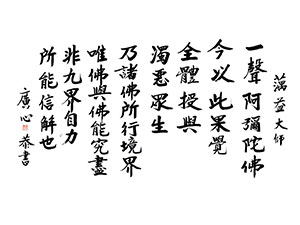 蕅益大师
一聲阿彌陀佛
今以此果覺
全體授與
濁惡眾生
乃諸佛所行境界
唯佛與佛能究盡
非九界自力
所能信解也
廣心恭書